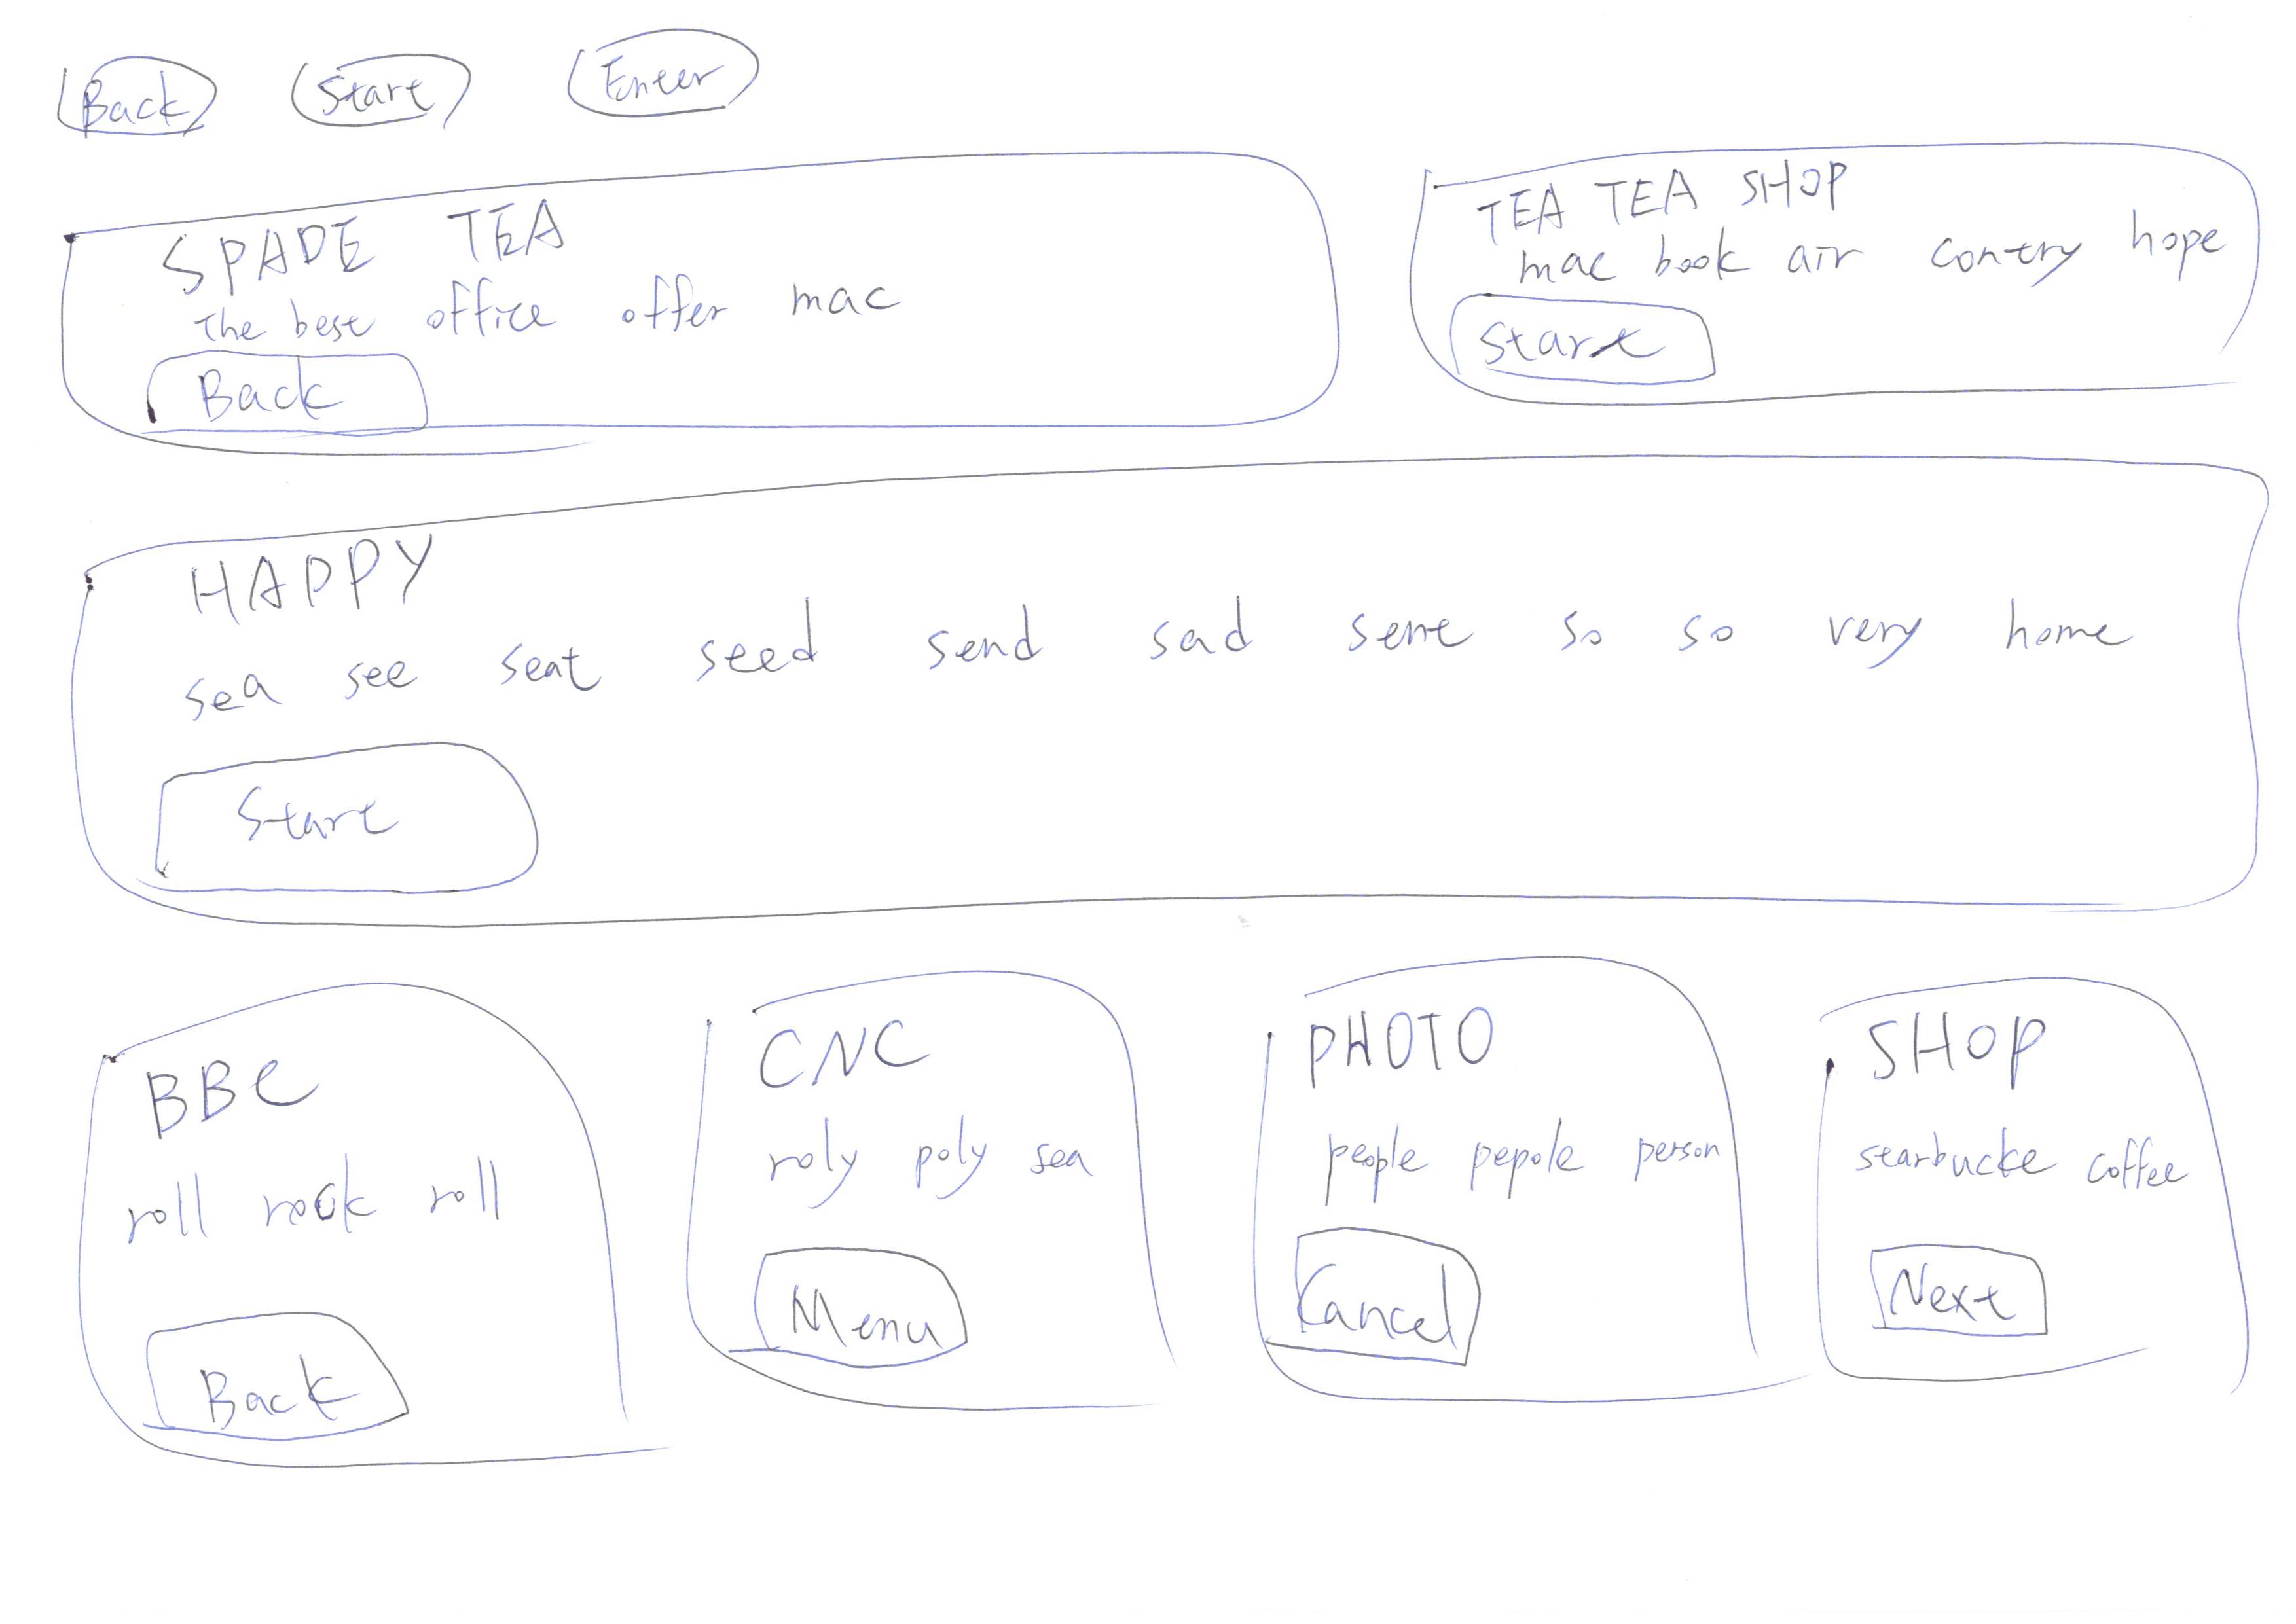 Back Start Enter
SPADE TEA
the best office offer mac
Back
TEA TEA SHOP
mac book air contry hope
Start
HAPPY
sea see seat seed send sad sent so so very home
Start
BBC
roll rock roll
Back
CNC
roly poly sea
Menu
PHOTO
people pepole person
Cancel
SHOP
starbucke coffee
Next